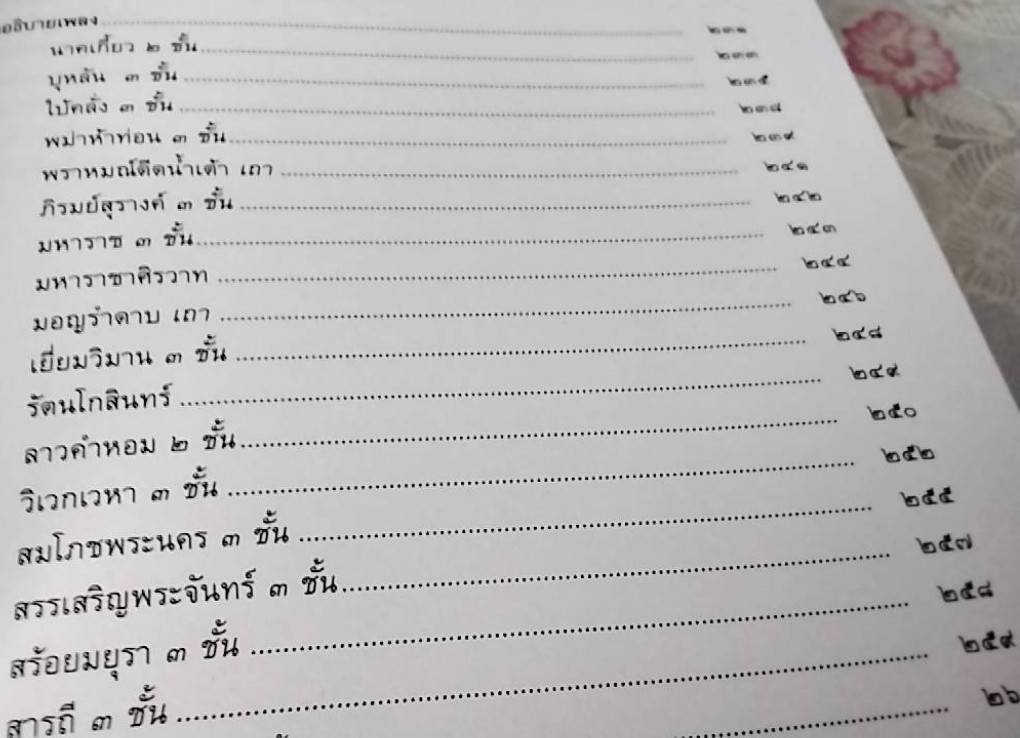 อธิบายเพลง ๒๓๑
นาคเกี้ยว ๒ ชั้น ๒๓๓
บุหลัน ๓ ชั้น ๒๓๕
ใบ้คลั่ง ๓ ชั้น ๒๓๘
พม่าห้าท่อน ๓ ชั้น ๒๓๙
พราหมณ์ดีดน้ำเต้า เถา ๒๔๑
ภิรมย์สุรางค์ ๓ ชั้น ๒๔๒
มหาราช ๓ ชั้น ๒๔๓
มหาราชาศิรวาท ๒๔๔
มอญรำดาบ เถา ๒๔๖
เยี่ยมวิมาน ๓ ชั้น ๒๔๘
รัตนโกสินทร์ ๒๔๙
ลาวคำหอม ๒ ชั้น ๒๕๐
วิเวกเวหา ๓ ชั้น ๒๕๒
สมโภชพระนคร ๓ ชั้น ๒๕๕
สรรเสริญพระจันทร์ ๓ ชั้น ๒๕๗
สร้อยมยุรา ๓ ชั้น ๒๕๘
สารถี ๓ ชั้น ๒๕๙